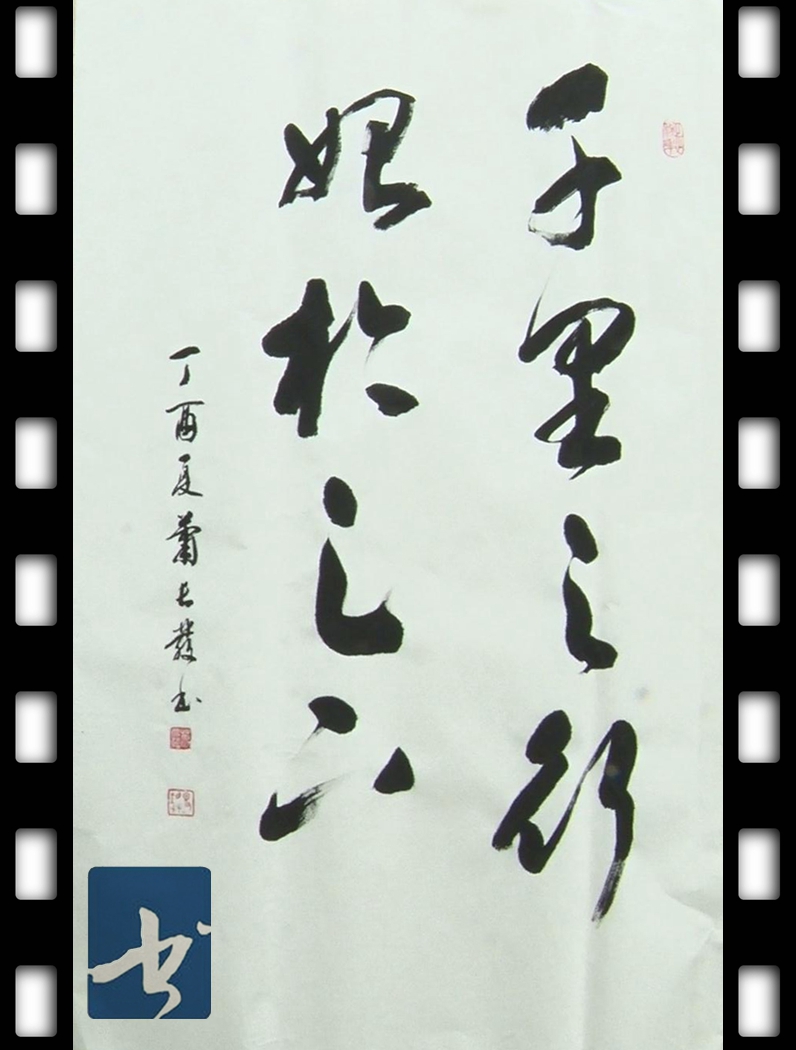 千里之行
始於之下
丁酉夏蕭長發書
书